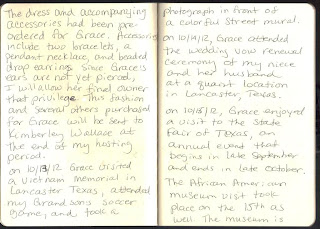 The dress and accompanying
accessories had been pre-
ordered for Grace. Accessories
include two bracelets, a
pendant necklace, and beaded
drop earrings. Since Grace's
ears are not yet pierced,
I will allow her final owner
that privilege. This fashion
and several others purchased
for Grace will be sent to
Kimberley Wallace at
the end of my hosting
period.
on 10/13/12 Grace visited
a Vietnam Memorial in
Lancaster Texas, attended
my Grandson's soccer
game, and took a
photograph in front of
a colorful street mural.
on 10/14/12, Grace attended
the wedding vow renewal
ceremony of my niece
and her husband
at a quaint location
in Lancaster, Texas.
on 10/15/12, Grace enjoyed
a visit to the State
Fair of Texas, an
annual event that
begins in late September
and ends in late October.
The African American
museum visit took
place on the 15th as
well. The museum is